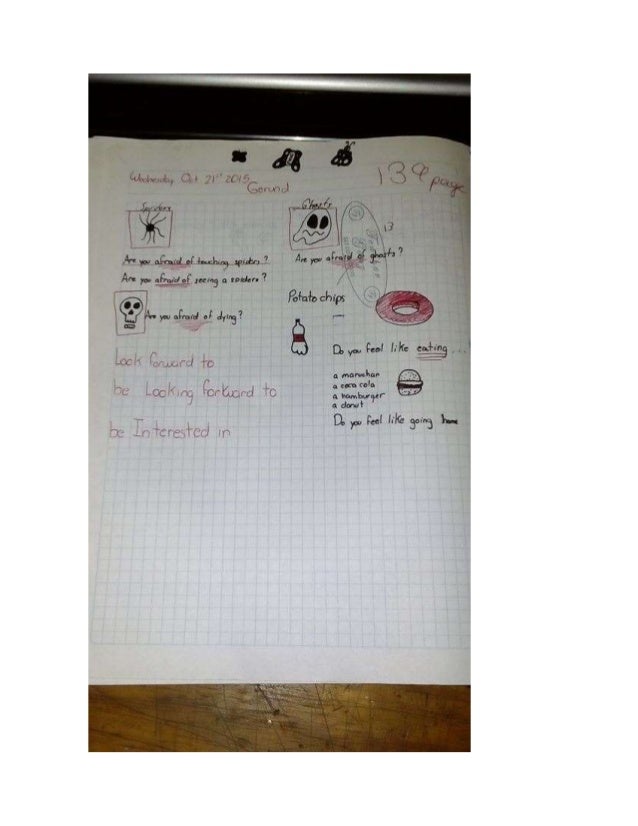 Wednesday Oct 21st 2015
Gerund
139 page
Spiders
Are you afraid of touching spiders?
Are you afraid of seeing a spiders?
Are you afraid of dying?
Look forward to
be Looking forward to
be Interested in
Ghosts
13
Are you afraid of ghosts?
Potato chips
Do you feel like eating...
a maruchan
a coca cola
a hamburger
a donut
Do you feel like going home